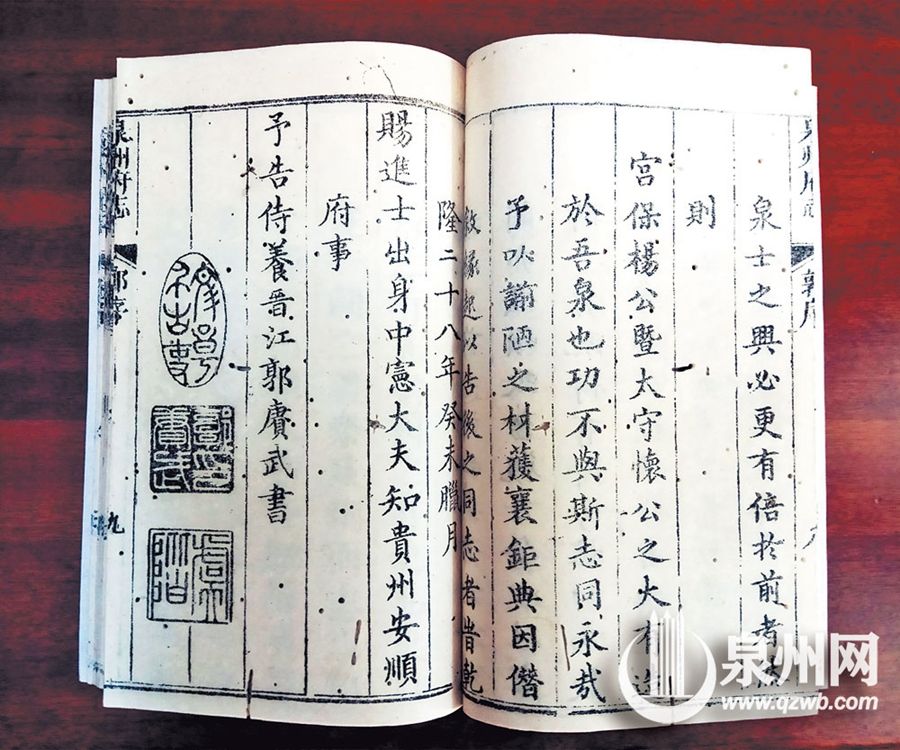 泉士之興必更有倍於前者然
則
宮保楊公暨太守懷公之大有造
於吾泉也功不與斯志同永哉
予以謭陋之材獲襄鉅典因僭
敘緣起以告後之同志者昔乾
隆二十八年癸未臘月
賜進士出身中憲大夫知貴州安順
府事
予告侍養晉江郭賡武書
泉州府志
郭序
九
泉州网
www.qzwb.com